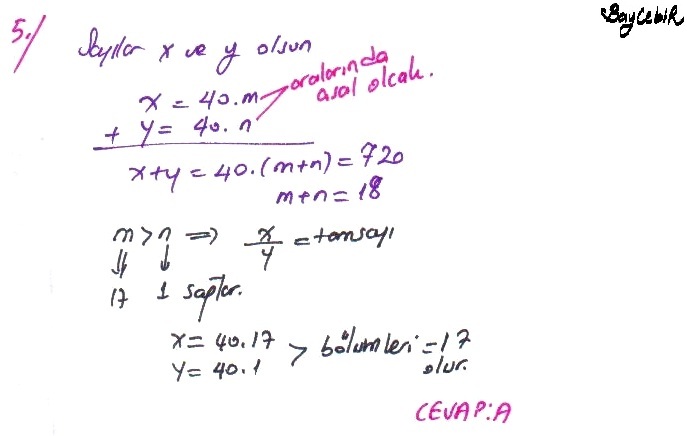 BayCebiR
5./ Sayılar x ve y olsun
x = 40.m
aralarında
asal olcak.
+ y = 40.n
x+y = 40.(m+n) = 720
m+n = 18
m>n ⇒ x/y = tamsayı
⇓ ↓
17 1 saptar.
x = 40.17
y = 40.1 > bölümleri = 17
olur.
CEVAP: A